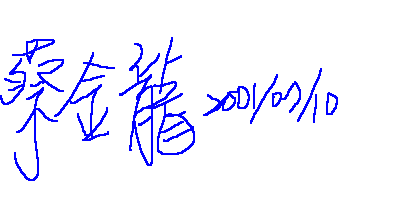 蔡金龍 2001/07/10